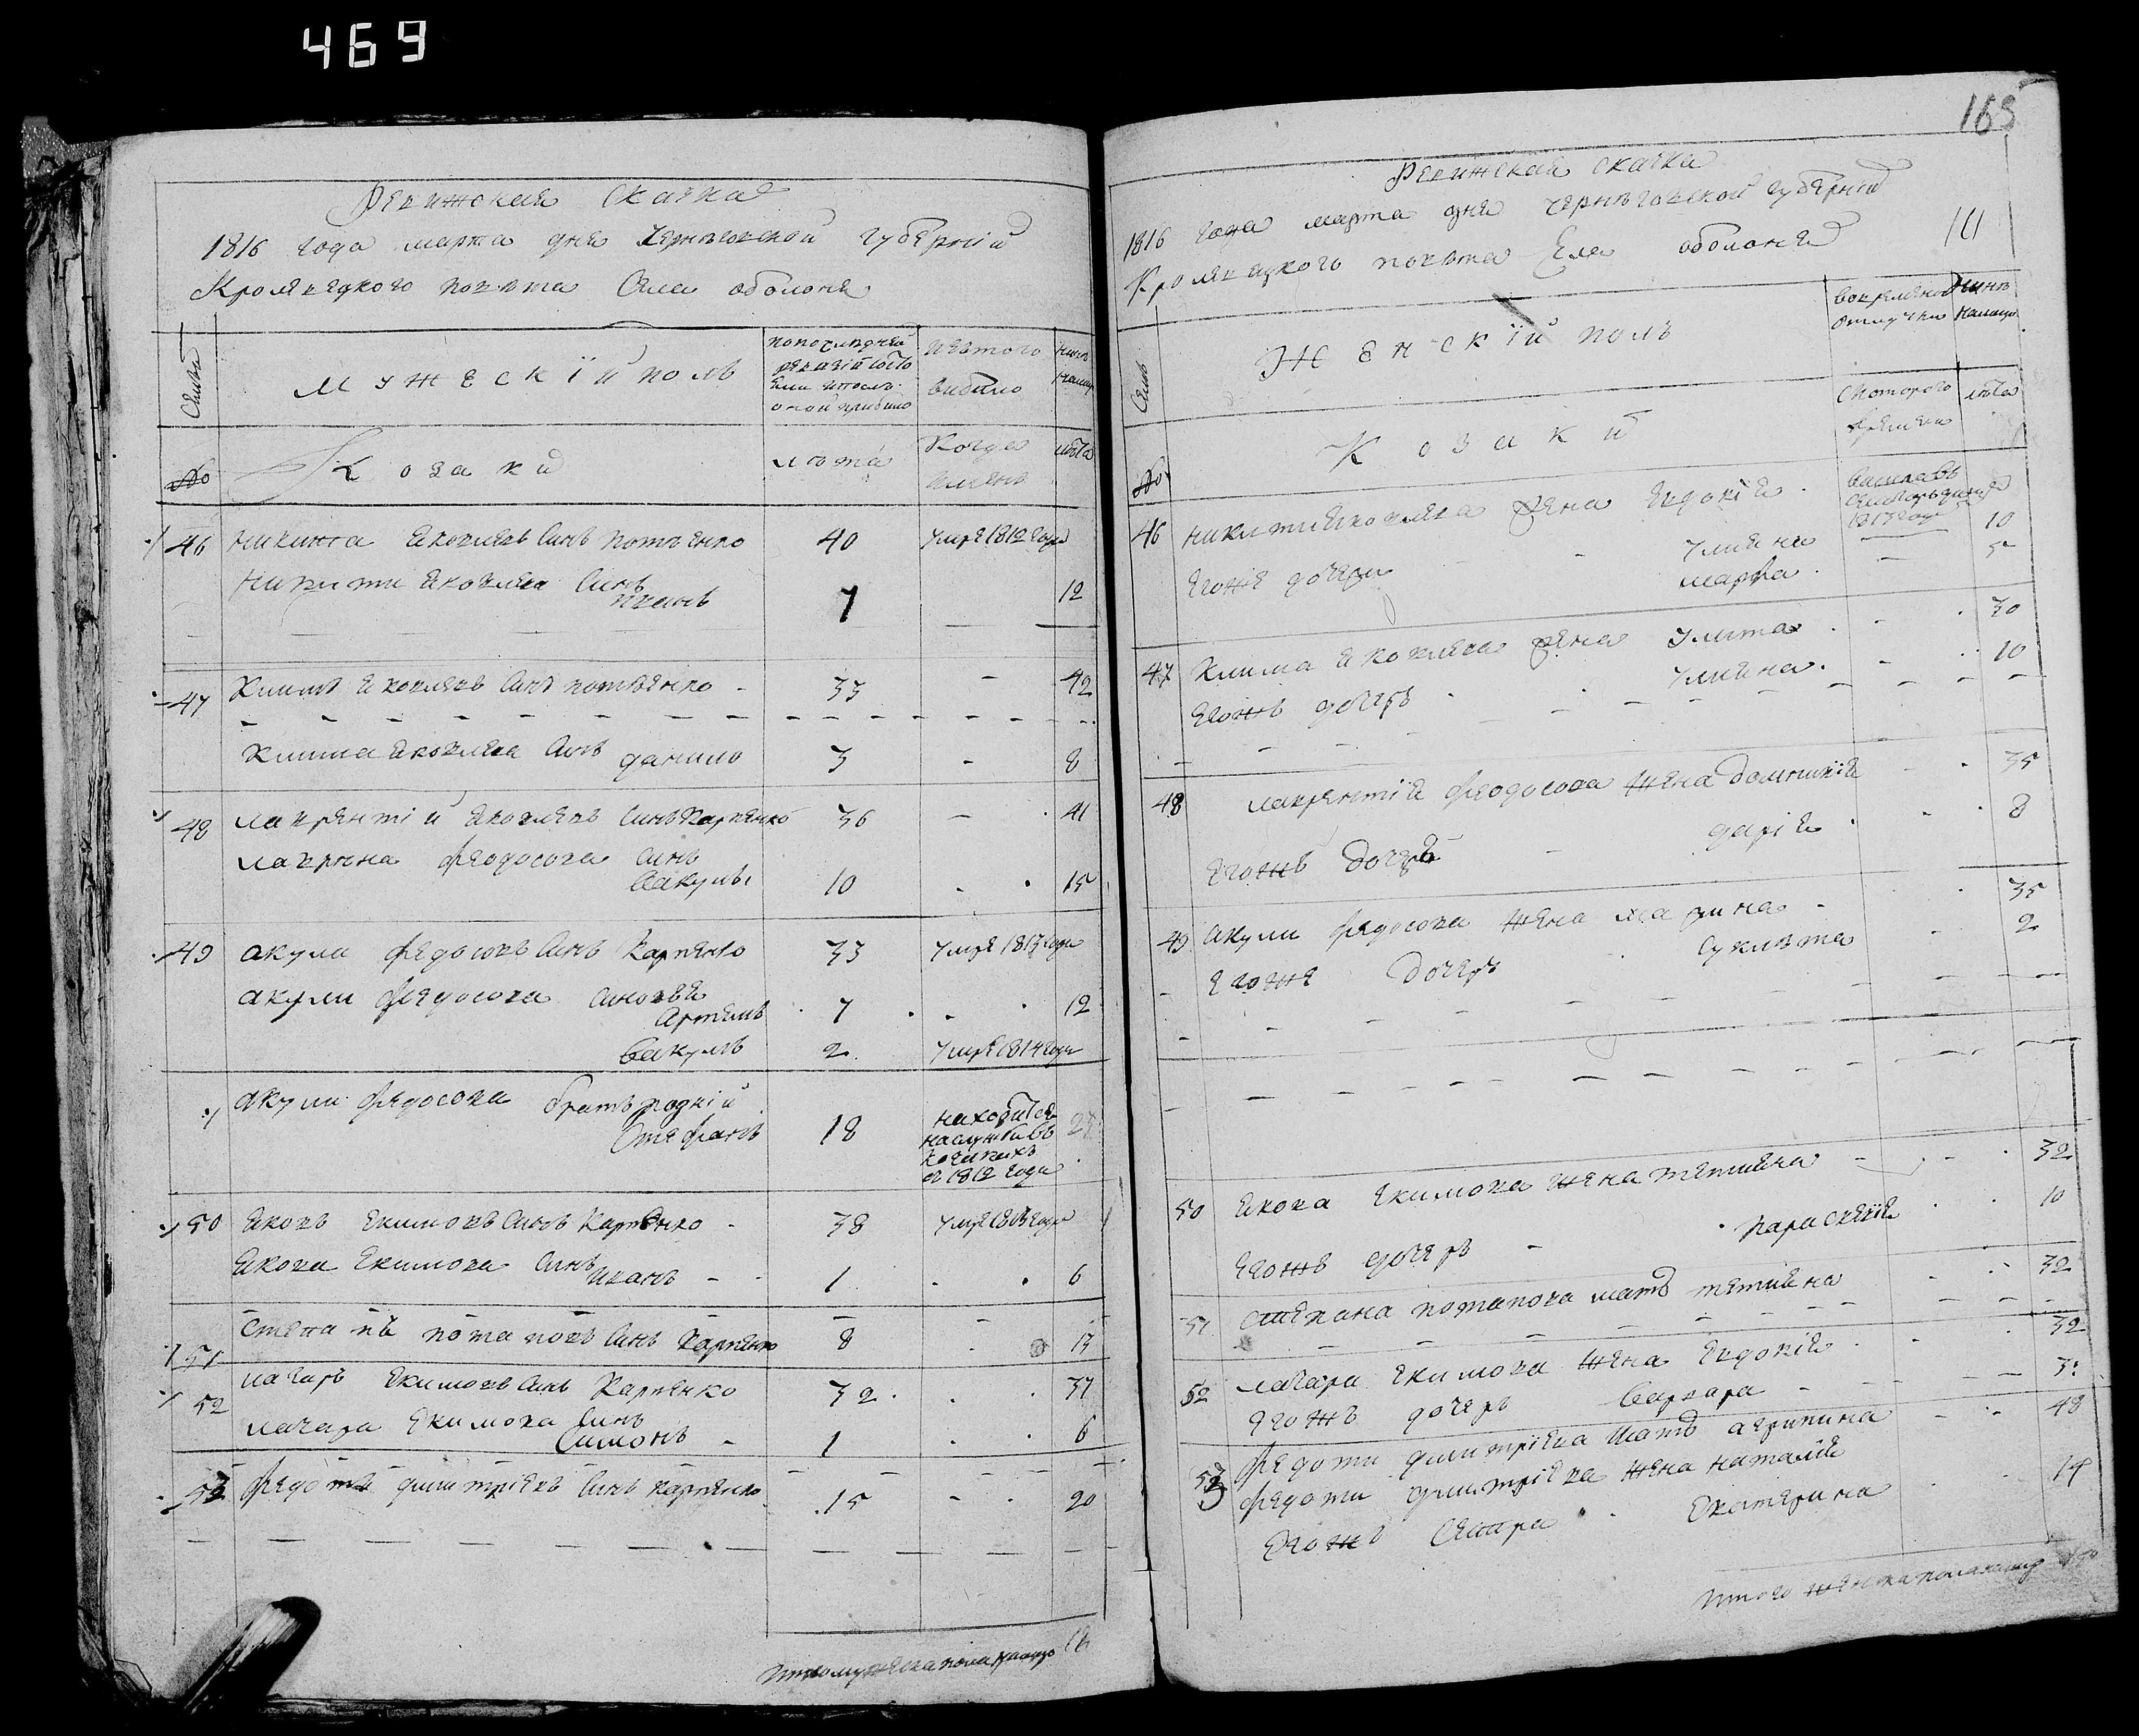 469
Ревижская скаска
1816 года марта дня Черниговской губерний
Кролевецкого повета Села оболоня
Семьи
мужескїй полъ
попоследней ревизїи состояли ипосле оной прибыло
изтого выбыло
ныне налицо
№
Козаки
лета
Когда именъ
лета
46 Никита Яковлевъ Синъ потѣенко 40 умре 1812 года
Никити Яковлева Синъ
иванъ 7 12
47 Климъ Яковлевъ Синъ потѣенко 33 42
Клима Яковлева Синъ данило 3 8
48 лаврентїй Яковлевъ Синъ Карпенко 36 41
лаврена феодосова Синъ
Вакулъ 10 15
49 акула федосовъ Синъ Карпенко 33 умре 1813 года
акули федосова Синовья
Артемъ 7 12
Вакулъ 2 умре 1814 года
акули федосова братъ родній
Стефанъ 18 находится
на службѣ въ
козаках
с 1812 года
50 Яковъ Екимовъ Синъ Карпенко 38 умре 1813 года
Якова Екимова Синъ
иванъ 1 6
51 Степанъ потаповъ Синъ Карпенко 8 13
52 лазаръ Екимовъ Синъ Карпенко 32 37
лазара Екимова Синъ
Симонъ 1 6
53 федотъ димитрїевъ Синъ карпенко 15 20
Итого мужеска пола налицо
165
Ревижская скаска
1816 года марта дня черниговской губерний
Кролевецкого повета Села оболоня
111
Семьи
Женскїй полъ
вовременной отлучки
ныне налицо
№
Козаки
Скоторого времени
лета
46 никити Яковлева жена Евдокїя
1813 года
Егоже дочери улияна 10
марфа 5
47 Клима Яковлева жена улита 30
Егожъ дочеръ улияна 10
48 лаврентїя феодосова жена домникїя 35
Егожъ дочеръ дарїя 8
49 акули федосова жена марина 35
Егоже дочеръ 2
50 Якова Екимова жена тетияна 32
Егожъ дочеръ параскевїя 10
51 степана потапова матъ тетияна 32
52 лазара Екимова жена Евдокїя 32
Егожъ дочеръ варвара 3
53 федоти димитрїева матъ агрипина 48
федоти димитрїева жена наталїя
Егожъ Сестра Екатерина
Итого женска пола налицо